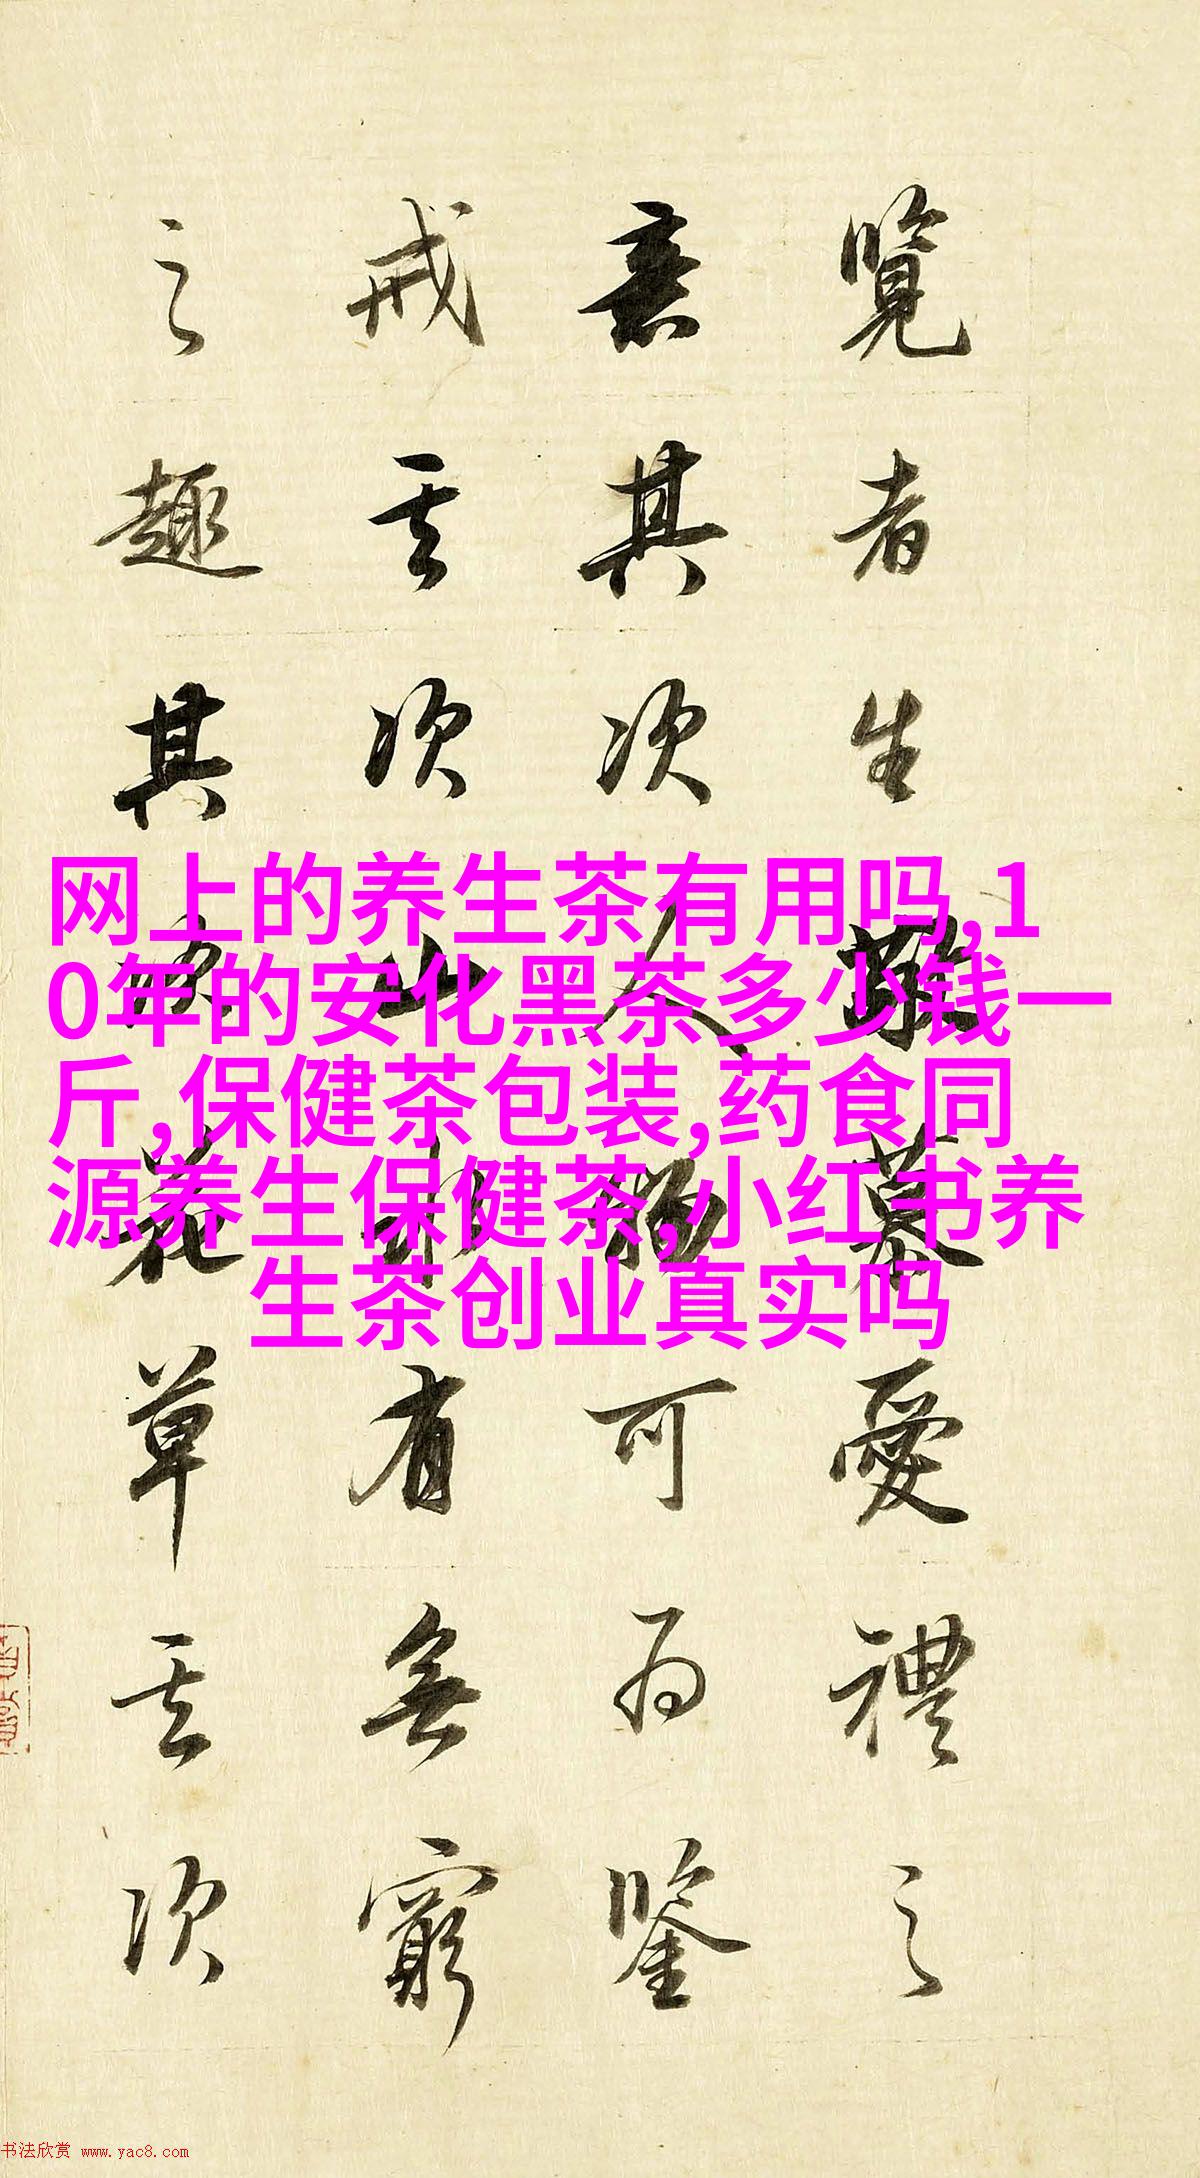 覽者生敬慕愛禮之
意其次人物可為鑒
戒其次山水有無窮
之趣其次花草其次
网上的养生茶有用吗,1
0年的安化黑茶多少钱一
斤,保健茶包装,药食同
源养生保健茶,小红书养
生茶创业真实吗
书法欣赏 www.yac8.com